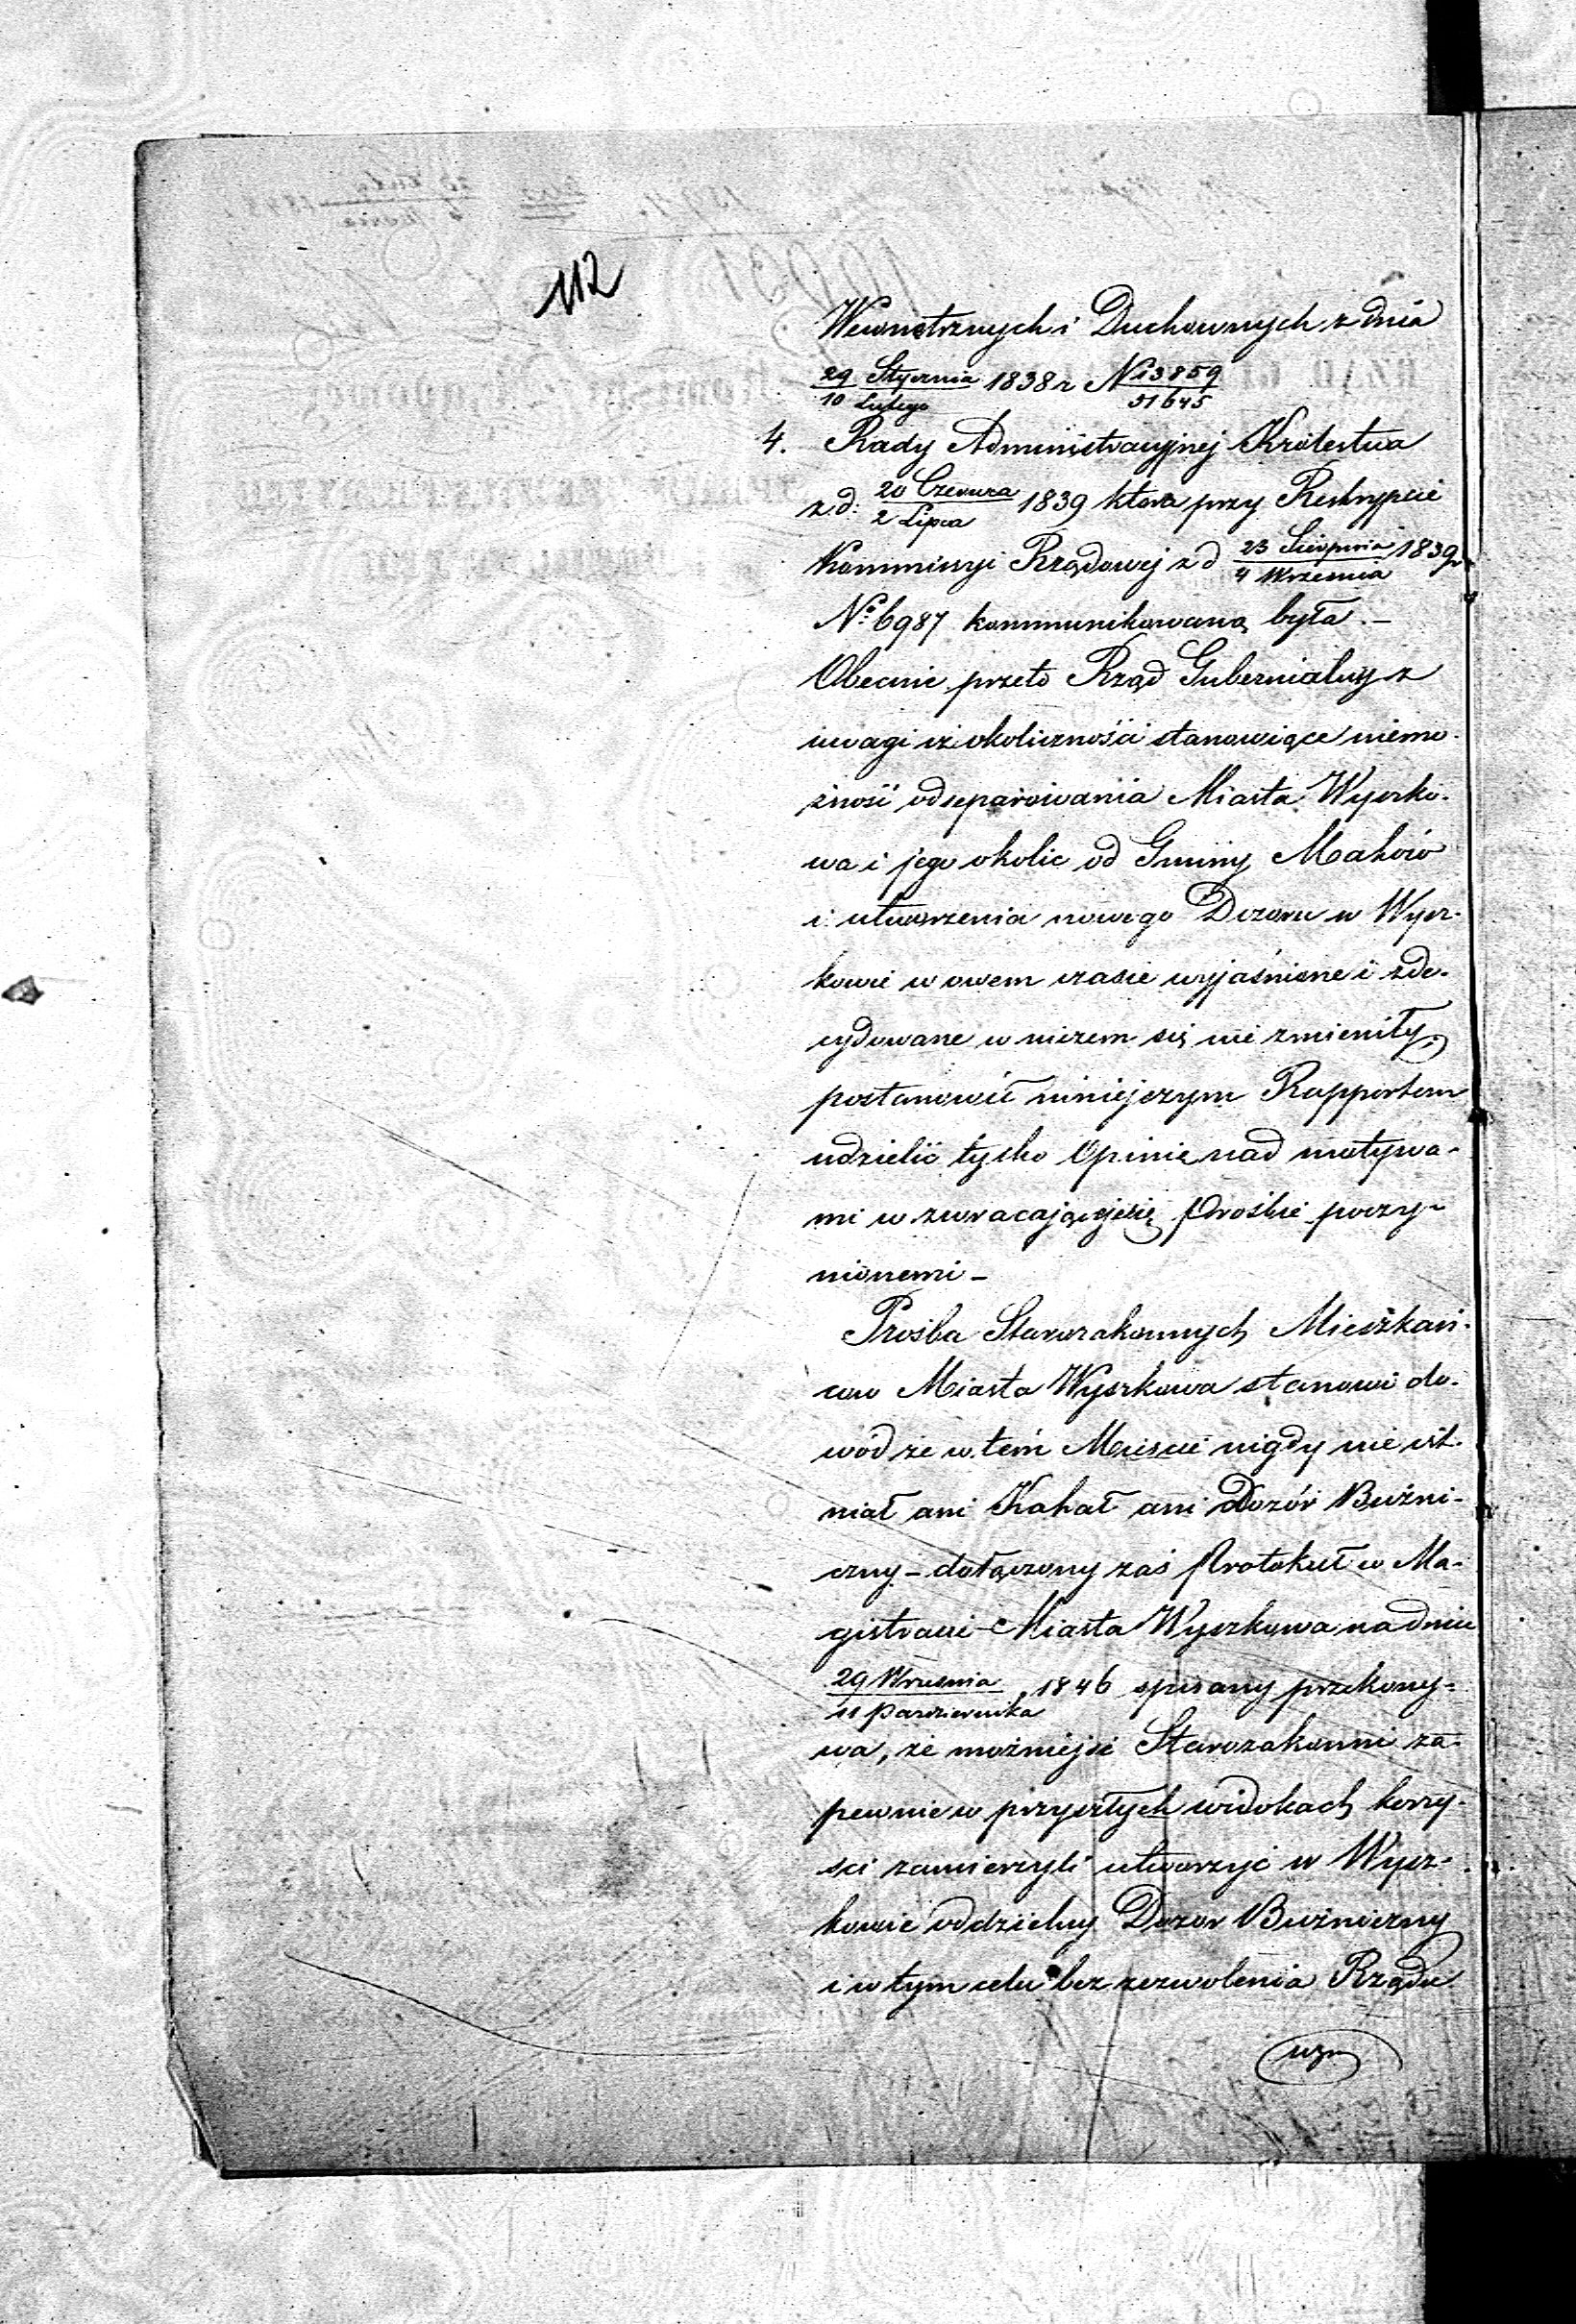 112
Wewnetrznych i Duchownych z dnia
29 Stycznia / 10 Lutego 1838 r N 13859 / 51645
4. Rady Administracyjnej Królestwa
z d: 20 Czerwca / 2 Lipca 1839 która przy Reskrypcie
Kommissyi Rządowej z d 23 Sierpnia / 4 Września 1839 r
No 6987 kommunikowaną była. –
Obecnie przeto Rząd Gubernialny z
uwagi iż okoliczności stanowiące niemo-
żność odseparowania Miasta Wyszko-
wa i jego okolic od Gminy Maków
i utworzenia nowego Dozoru w Wysz-
kowie w owem czasie wyjaśnione i zde-
cydowane w niczem się nie zmieniły,
postanowił niniejszym Rapportem
udzielić tylko Opinie nad motywa-
mi w zwracającejsię Prośbie poczy-
nionemi –
Prośba Starozakonnych Mieszkań-
cow Miasta Wyszkowa stanowi do-
wód że w tem Miescie nigdy nie ist-
niał ani Kahał ani Dozór Bużni-
czny – dołączony zaś Protokuł w Ma-
gistracie Miasta Wyszkowa na dniu
29 Września / 11 Pazdziernika 1846 spisany przekony-
wa, że możniejsi Starozakonni za-
pewnie w przyszłych widokach korzy-
sci zamierzyli utworzyć w Wysz-
kowie oddzielny Dozor Bużniczny
i w tym celu bez zezwolenia Rządu